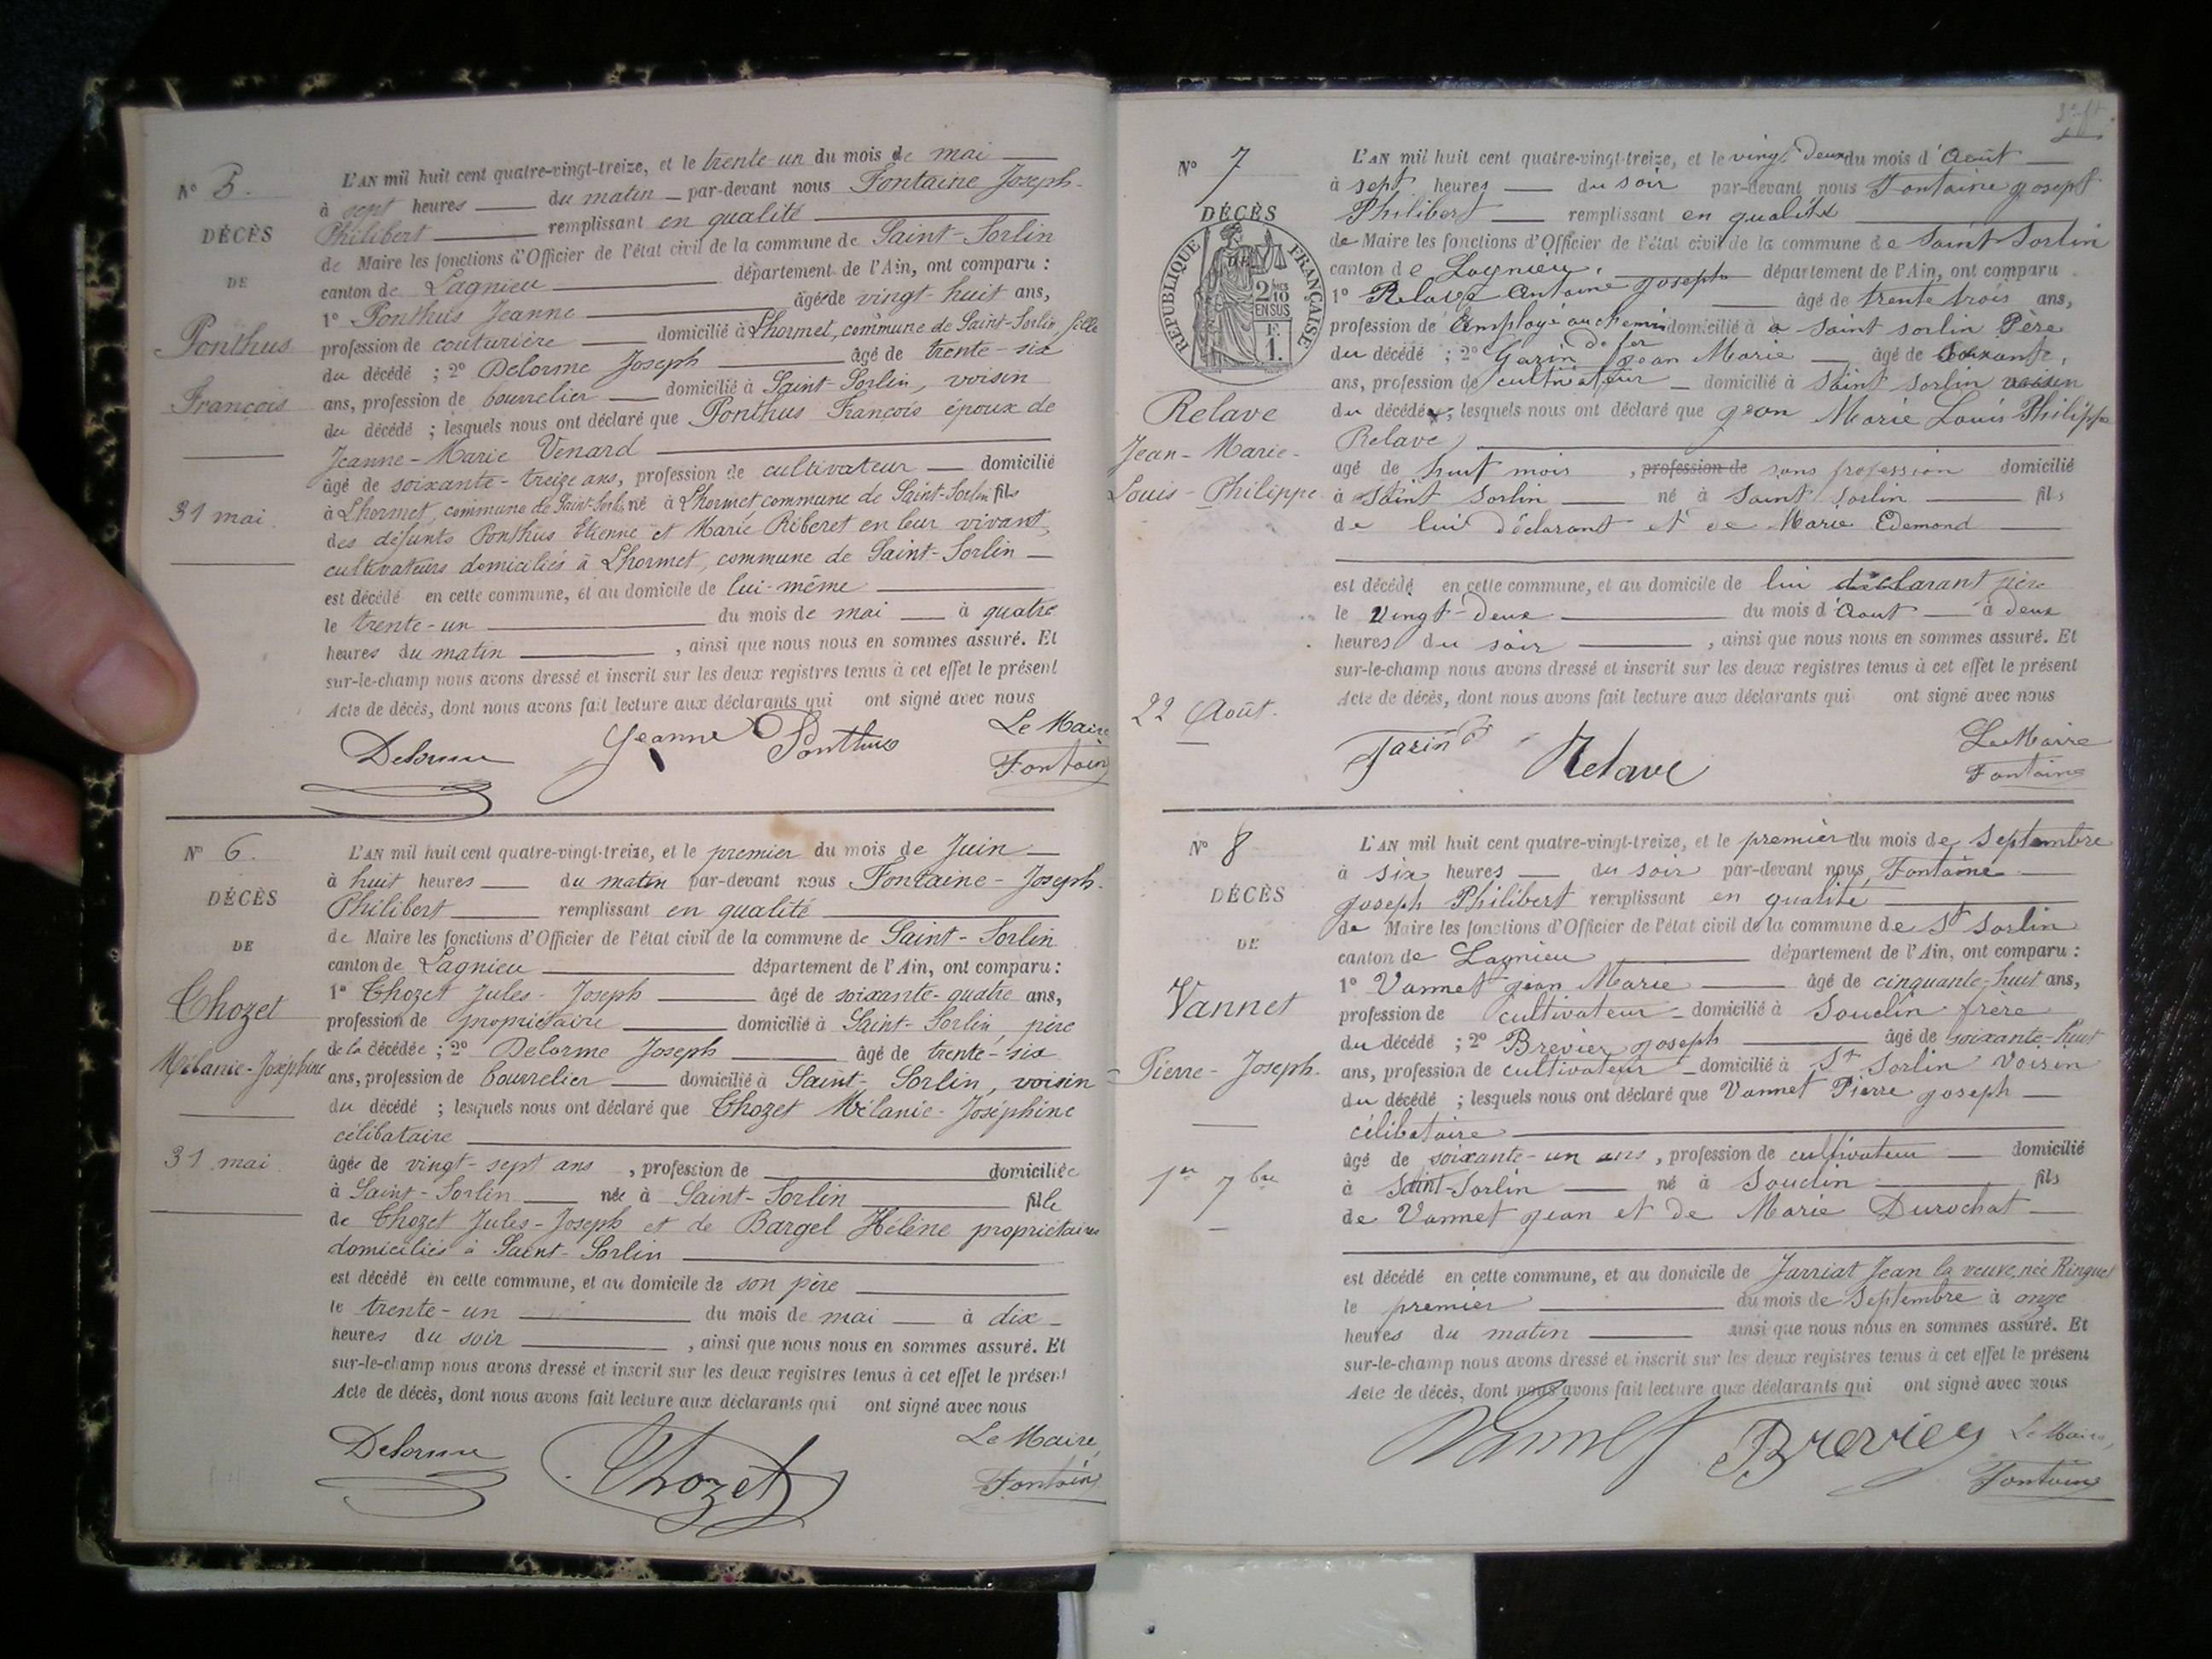 N° 5.
DÉCÈS
DE
Ponthus
François
31 mai
L'AN mil huit cent quatre-vingt-treize, et le trente-un du mois de mai
à sept heures du matin par-devant nous Fontaine Joseph-
Philibert remplissant en qualité
de Maire les fonctions d'Officier de l'état civil de la commune de Saint-Sorlin
canton de Lagnieu département de l'Ain, ont comparu :
1° Ponthus Jeanne âgée de vingt-huit ans,
profession de couturière domicilié à Lhormet, commune de Saint-Sorlin, fille
du décédé ; 2° Delorme Joseph âgé de trente-six
ans, profession de bourrelier domicilié à Saint-Sorlin, voisin
du décédé ; lesquels nous ont déclaré que Ponthus François époux de
Jeanne-Marie Venard
âgé de soixante-treize ans, profession de cultivateur domicilié
à Lhormet, commune de Saint-Sorlin né à Lhormet commune de Saint-Sorlin fils
des défunts Ponthus Etienne et Marie Riberet en leur vivant,
cultivateurs domiciliés à Lhormet, commune de Saint-Sorlin
est décédé en cette commune, et au domicile de lui-même
le trente-un du mois de mai à quatre
heures du matin , ainsi que nous nous en sommes assuré. Et
sur-le-champ nous avons dressé et inscrit sur les deux registres tenus à cet effet le présent
Acte de décès, dont nous avons fait lecture aux déclarants qui ont signé avec nous
Delorme Jeanne Ponthus Le Maire
Fontaine
N° 6.
DÉCÈS
DE
Thozet
Mélanie-Joséphine
31 mai
L'AN mil huit cent quatre-vingt-treize, et le premier du mois de Juin
à huit heures du matin par-devant nous Fontaine-Joseph-
Philibert remplissant en qualité
de Maire les fonctions d'Officier de l'état civil de la commune de Saint-Sorlin
canton de Lagnieu département de l'Ain, ont comparu :
1° Thozet Jules-Joseph âgé de soixante-quatre ans,
profession de propriétaire domicilié à Saint-Sorlin, père
de la décédée ; 2° Delorme Joseph âgé de trente-six
ans, profession de bourrelier domicilié à Saint-Sorlin, voisin
du décédé ; lesquels nous ont déclaré que Thozet Mélanie-Joséphine
célibataire
âgée de vingt-sept ans , profession de domiciliée
à Saint-Sorlin née à Saint-Sorlin fille
de Thozet Jules-Joseph et de Bargel Hélène propriétaires
domiciliés à Saint-Sorlin
est décédé en cette commune, et au domicile de son père
le trente-un du mois de mai à dix
heures du soir , ainsi que nous nous en sommes assuré. Et
sur-le-champ nous avons dressé et inscrit sur les deux registres tenus à cet effet le présent
Acte de décès, dont nous avons fait lecture aux déclarants qui ont signé avec nous
Delorme Thozet Le Maire,
Fontaine
N° 7
DÉCÈS
DE
RÉPUBLIQUE FRANÇAISE
2/10 EN SUS
F. 1.
Relave
Jean-Marie-
Louis-Philippe
22 Août.
L'AN mil huit cent quatre-vingt-treize, et le vingt deux du mois d'Août
à sept heures du soir par-devant nous Fontaine Joseph
Philibert remplissant en qualité
de Maire les fonctions d'Officier de l'état civil de la commune de Saint Sorlin
canton de Lagnieu, département de l'Ain, ont comparu
1° Relave Antoine Joseph âgé de trente trois ans,
profession de Employé au chemin de fer domicilié à a Saint Sorlin Père
du décédé ; 2° Garin Jean Marie âgé de soixante,
ans, profession de cultivateur domicilié à Saint Sorlin voisin
du décédé ; lesquels nous ont déclaré que Jean Marie Louis Philippe
Relave
agé de huit mois , profession de sans profession domicilié
à Saint Sorlin né à Saint Sorlin fils
de lui déclarant et de Marie Edemond
est décédé en cette commune, et au domicile de lui déclarant père
le vingt-deux du mois d'Aout à deux
heures du soir , ainsi que nous nous en sommes assuré. Et
sur-le-champ nous avons dressé et inscrit sur les deux registres tenus à cet effet le présent
Acte de décès, dont nous avons fait lecture aux déclarants qui ont signé avec nous
Garin Relave Le Maire
Fontaine
N° 8
DÉCÈS
DE
Vannet
Pierre-Joseph.
1er 7bre
L'AN mil huit cent quatre-vingt-treize, et le premier du mois de Septembre
à six heures du soir par-devant nous, Fontaine
Joseph Philibert remplissant en qualité
de Maire les fonctions d'Officier de l'état civil de la commune de St Sorlin
canton de Lagnieu département de l'Ain, ont comparu :
1° Vannet Jean Marie âgé de cinquante-huit ans,
profession de cultivateur domicilié à Souclin frère
du décédé ; 2° Brevier Joseph âgé de soixante-huit
ans, profession de cultivateur domicilié à St Sorlin Voisin
du décédé ; lesquels nous ont déclaré que Vannet Pierre Joseph
célibataire
âgé de soixante-un ans , profession de cultivateur domicilié
à Saint-Sorlin né à Souclin fils
de Vannet Jean et de Marie Durochat
est décédé en cette commune, et au domicile de Jarriat Jean la veuve, née Ringuet
le premier du mois de Septembre à onze
heures du matin ainsi que nous nous en sommes assuré. Et
sur-le-champ nous avons dressé et inscrit sur les deux registres tenus à cet effet le présent
Acte de décès, dont nous avons fait lecture aux déclarants qui ont signé avec nous
Vannet Brevier Le Maire,
Fontaine